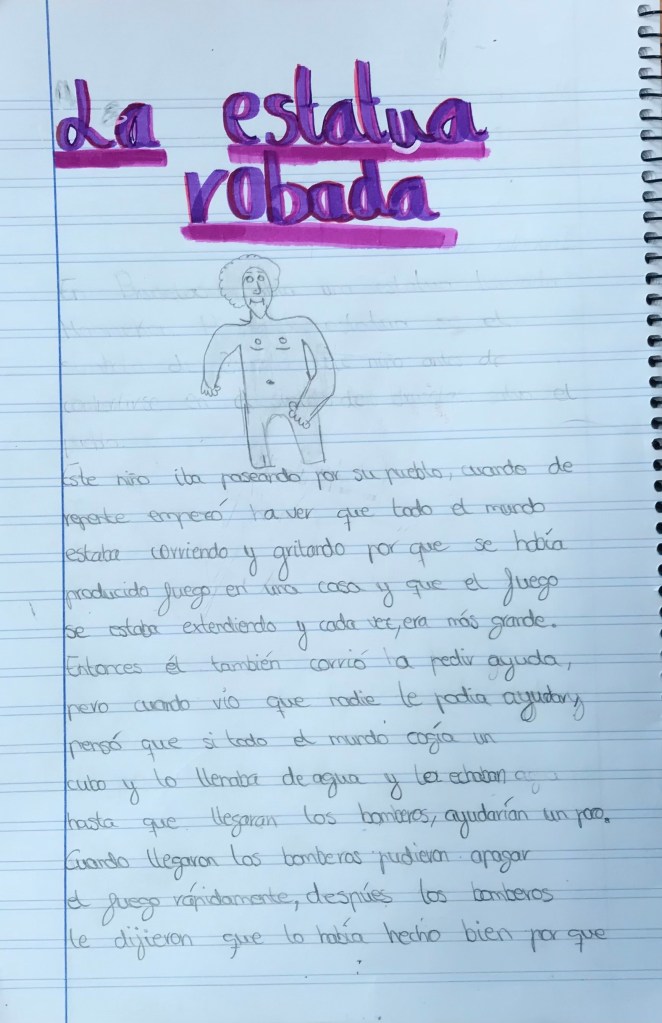 La estatua
robada
Este niño iba paseando por su pueblo, cuando de
repente empezó a ver que todo el mundo
estaba corriendo y gritando por que se había
producido fuego en una casa y que el fuego
se estaba extendiendo y cada vez, era más grande.
Entonces él también corrió a pedir ayuda,
pero cuando vío que nadie le podía ayudar,
pensó que si todo el mundo cogía un
cubo y lo llenaba de agua y echaban
hasta que llegaran los bomberos, ayudarían un poco.
Cuando llegaron los bomberos pudieron apagar
el fuego rápidamente, después los bomberos
le dijieron que lo había hecho bien por que